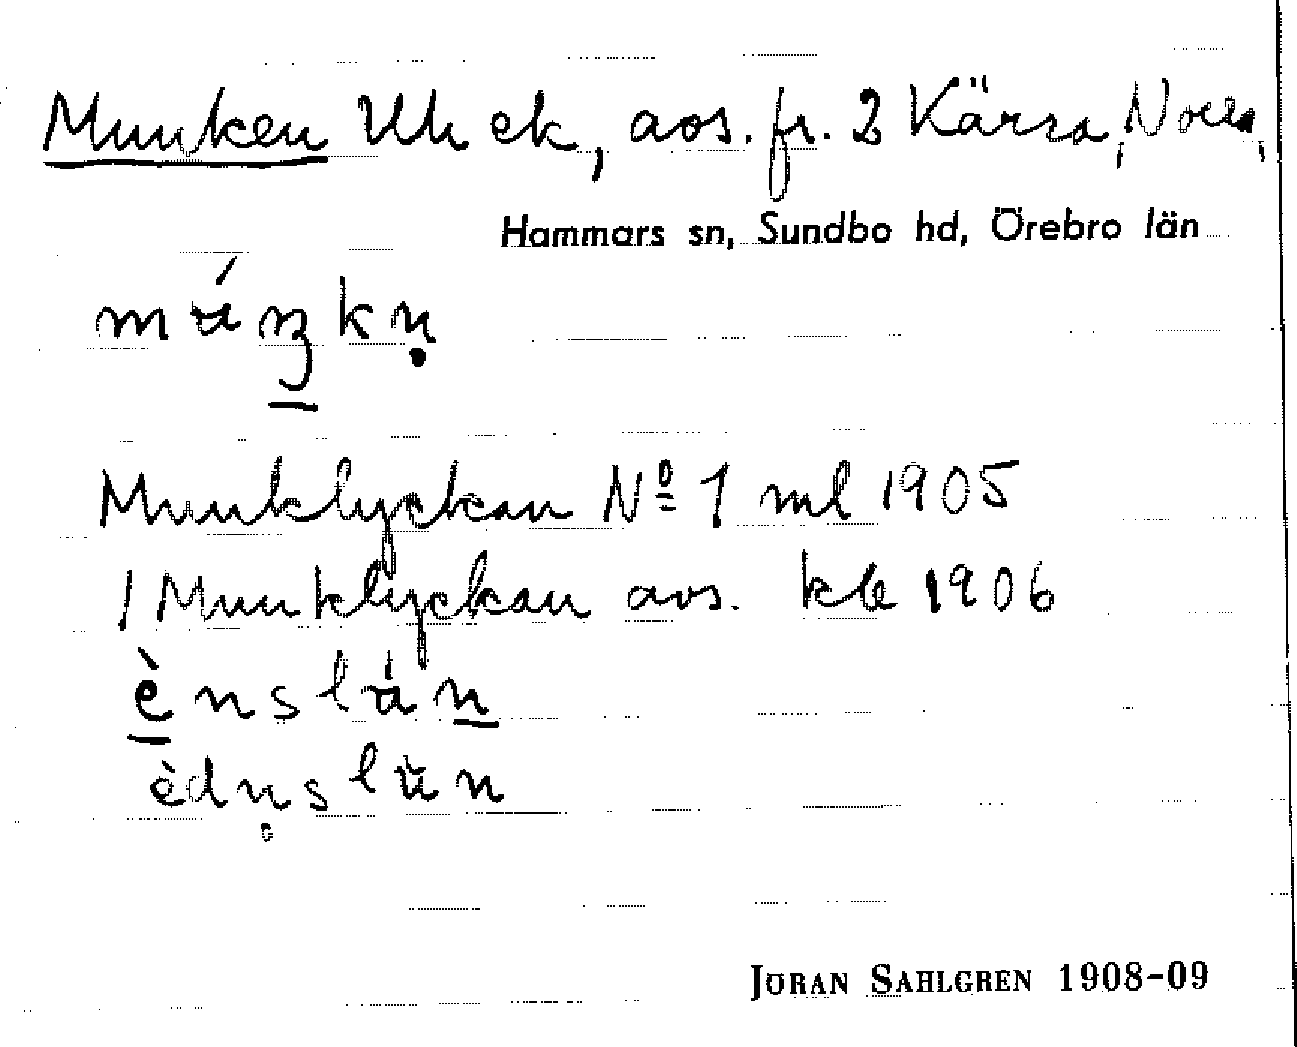 Munken Uh ek, avs. fr. 2 Kärra, Norra,
Hammars sn, Sundbo hd, Örebro län
Munklyckan Nº 1 ml 1905
/ Munklyckan avs. kle 1906
ènslán
èdṇslŭn
JÖRAN SAHLGREN 1908-09